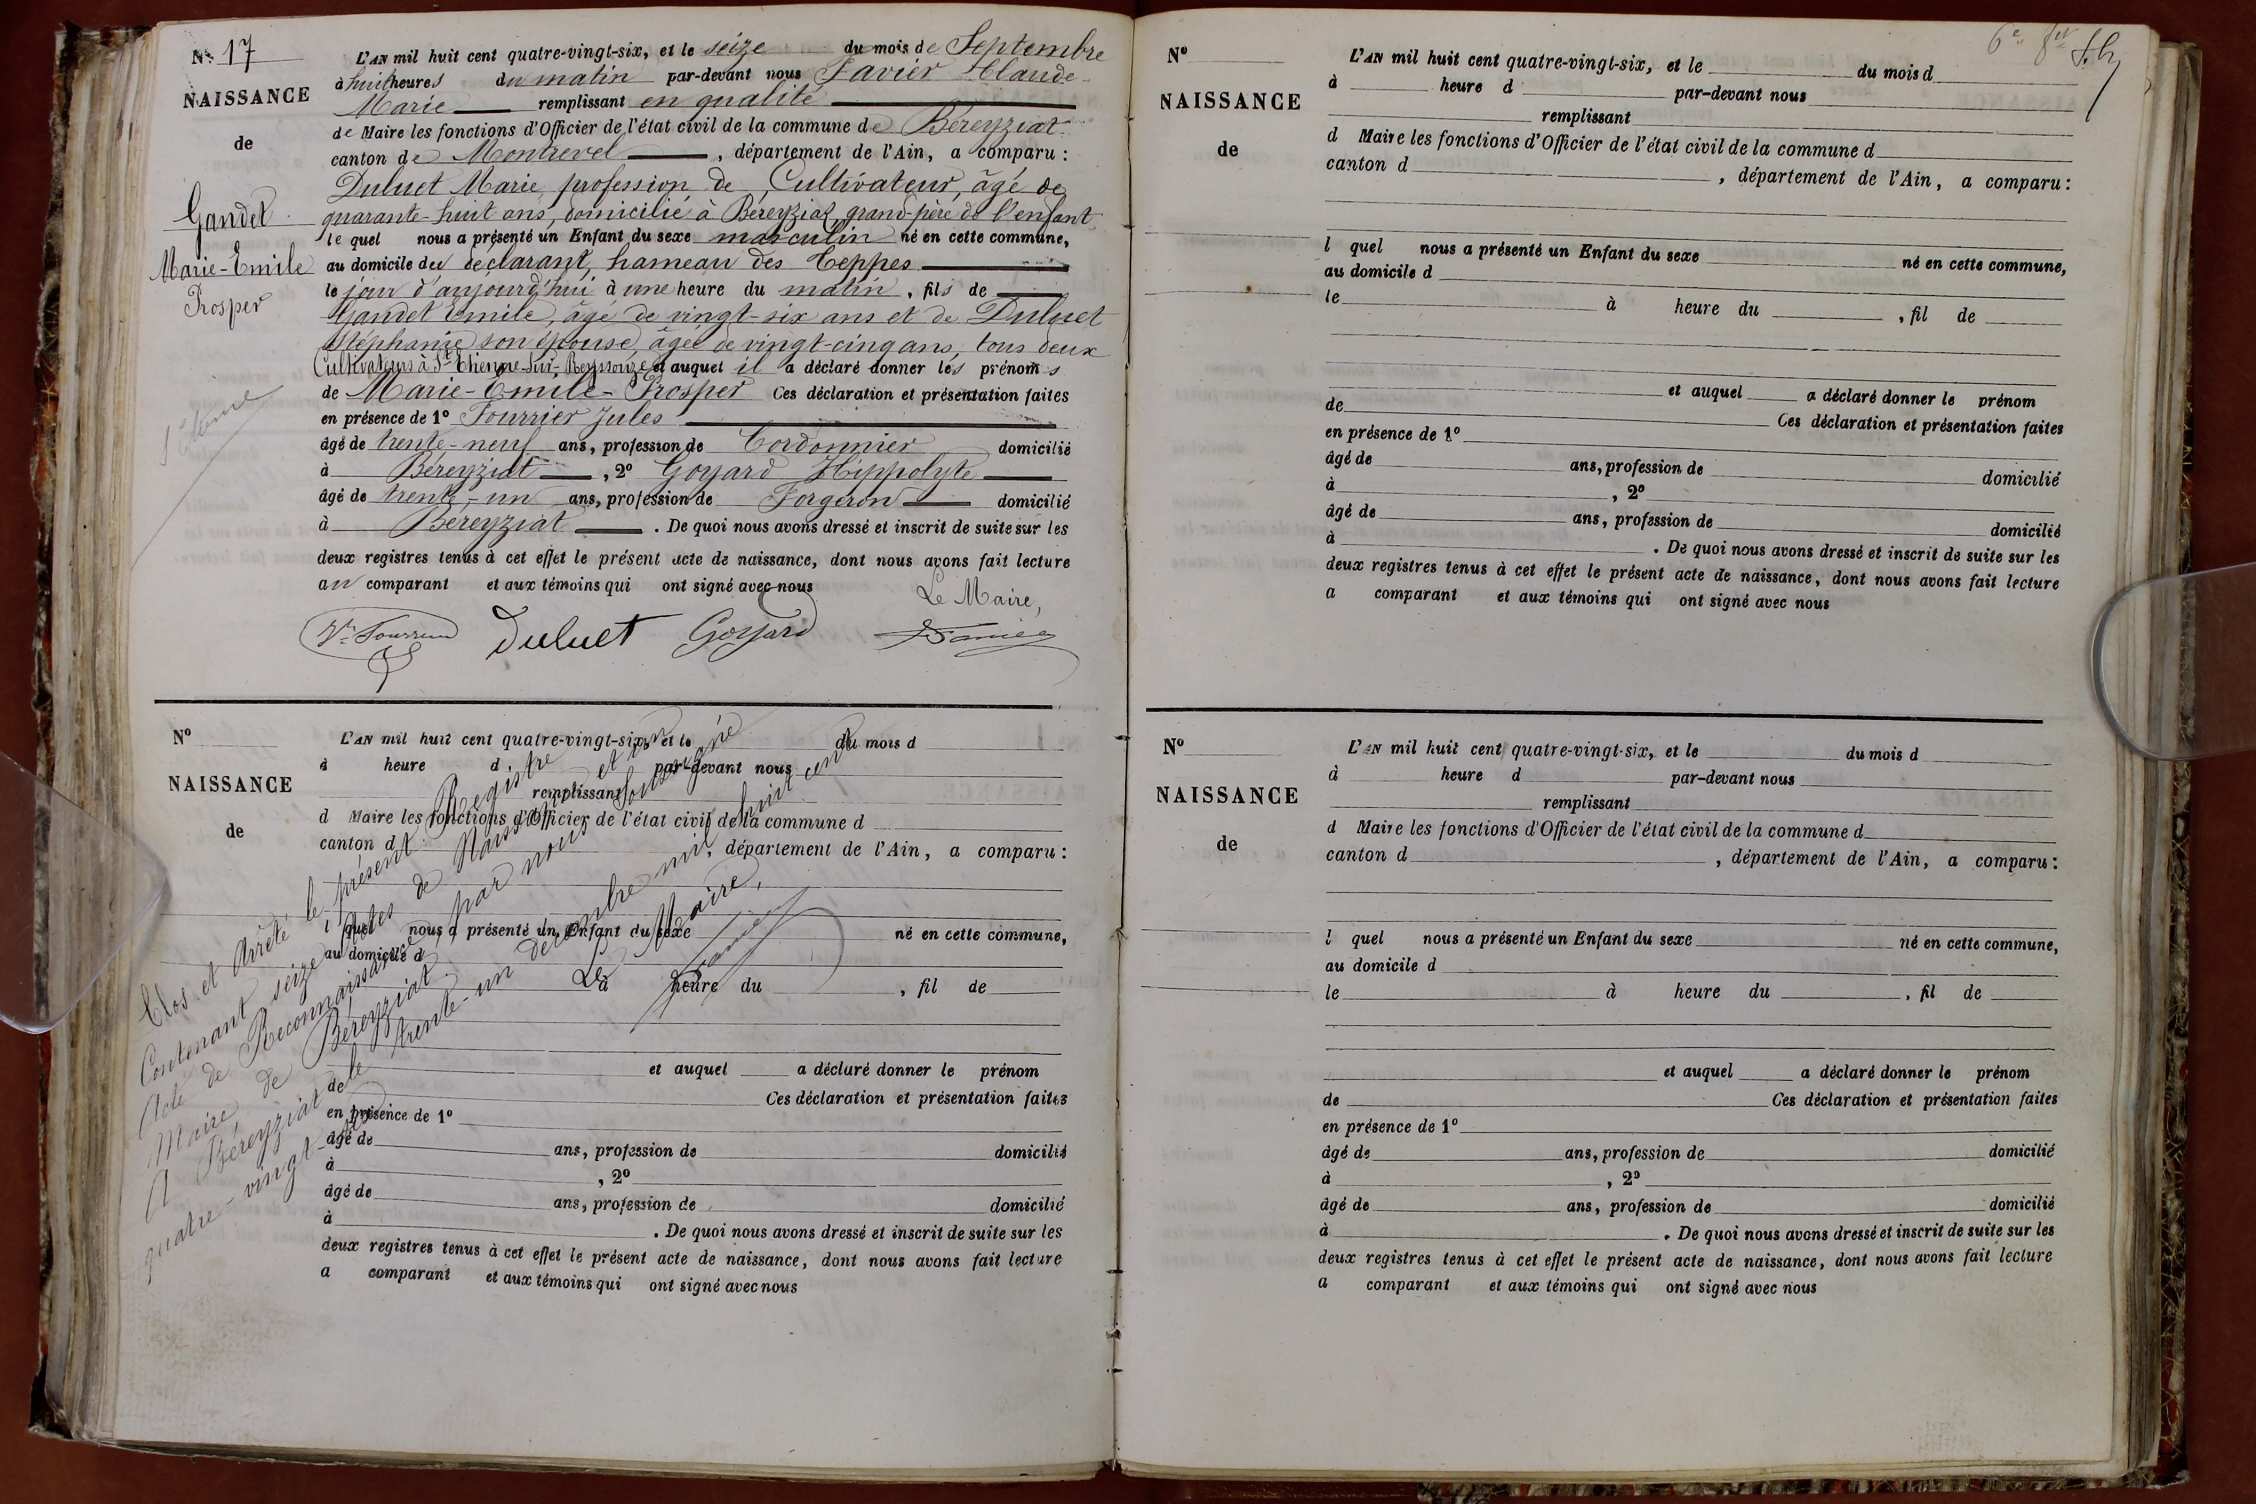 No 17
NAISSANCE
de
Gandet
Marie-Emile
Prosper
L'AN mil huit cent quatre-vingt-six, et le seize du mois de Septembre
à huit heures du matin par-devant nous Favier Claude-
Marie remplissant en qualité
de Maire les fonctions d'Officier de l'état civil de la commune de Béreyziat
canton de Montrevel, département de l'Ain, a comparu :
Duluet Marie, profession de Cultivateur, âgé de
quarante-huit ans, domicilié à Béreyziat, grand-père de l'enfant
le quel nous a présenté un Enfant du sexe masculin né en cette commune,
au domicile du déclarant, hameau des Teppes
le jour d'aujourd'hui à une heure du matin, fils de
Gandet Emile, âgé de vingt-six ans et de Duluet
Stéphanie son épouse, âgée de vingt-cinq ans, tous deux
Cultivateurs à St Etienne-sur-Reyssouze et auquel il a déclaré donner les prénoms
de Marie-Emile-Prosper Ces déclaration et présentation faites
en présence de 1º Fourrier Jules
âgé de trente-neuf ans, profession de Cordonnier domicilié
à Béreyziat, 2º Goyard Hippolyte
âgé de trente-un ans, profession de Forgeron domicilié
à Béreyziat. De quoi nous avons dressé et inscrit de suite sur les
deux registres tenus à cet effet le présent acte de naissance, dont nous avons fait lecture
au comparant et aux témoins qui ont signé avec nous
Le Maire,
Duluet Goyard
Nº
NAISSANCE
de
L'AN mil huit cent quatre-vingt-six, et le du mois d
à heure d par-devant nous
remplissant
d Maire les fonctions d'Officier de l'état civil de la commune d
canton d , département de l'Ain, a comparu :
l quel nous a présenté un Enfant du sexe né en cette commune,
au domicile d
le à heure du , fil de
et auquel a déclaré donner le prénom
de Ces déclaration et présentation faites
en présence de 1º
âgé de ans, profession de domicilié
à , 2º
âgé de ans, profession de domicilié
à . De quoi nous avons dressé et inscrit de suite sur les
deux registres tenus à cet effet le présent acte de naissance, dont nous avons fait lecture
a comparant et aux témoins qui ont signé avec nous
Clos et Arrêté le présent Registre
Contenant seize Actes de Naissance et un
Acte de Reconnaissance, par nous soussigné
Maire, de Béreyziat.
A Béreyziat le trente-un décembre mil huit cent
quatre-vingt-six
Le Maire,
Nº
NAISSANCE
de
L'AN mil huit cent quatre-vingt-six, et le du mois d
à heure d par-devant nous
remplissant
d Maire les fonctions d'Officier de l'état civil de la commune d
canton d , département de l'Ain, a comparu :
l quel nous a présenté un Enfant du sexe né en cette commune,
au domicile d
le à heure du , fil de
et auquel a déclaré donner le prénom
de Ces déclaration et présentation faites
en présence de 1º
âgé de ans, profession de domicilié
à , 2º
âgé de ans, profession de domicilié
à . De quoi nous avons dressé et inscrit de suite sur les
deux registres tenus à cet effet le présent acte de naissance, dont nous avons fait lecture
a comparant et aux témoins qui ont signé avec nous
Nº
NAISSANCE
de
L'AN mil huit cent quatre-vingt-six, et le du mois d
à heure d par-devant nous
remplissant
d Maire les fonctions d'Officier de l'état civil de la commune d
canton d , département de l'Ain, a comparu :
l quel nous a présenté un Enfant du sexe né en cette commune,
au domicile d
le à heure du , fil de
et auquel a déclaré donner le prénom
de Ces déclaration et présentation faites
en présence de 1º
âgé de ans, profession de domicilié
à , 2º
âgé de ans, profession de domicilié
à . De quoi nous avons dressé et inscrit de suite sur les
deux registres tenus à cet effet le présent acte de naissance, dont nous avons fait lecture
a comparant et aux témoins qui ont signé avec nous